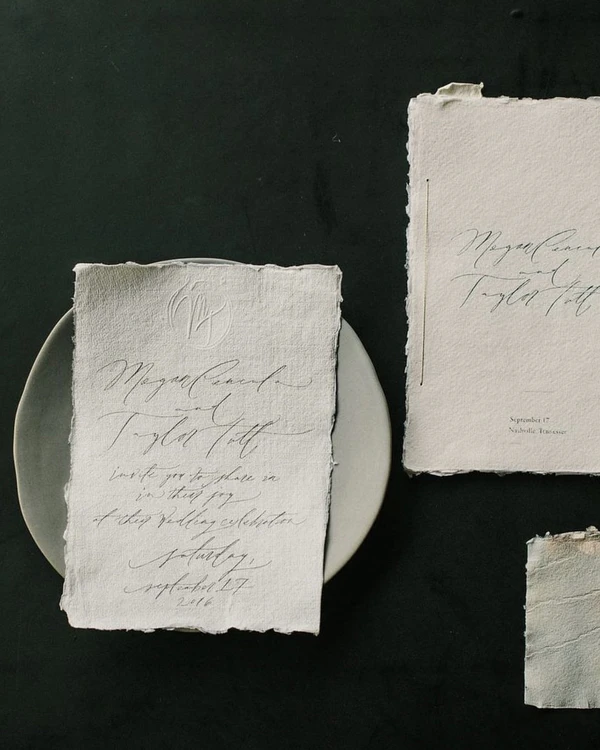 Megan
and
Taylor
invite you to share
in their joy
at their wedding celebration
saturday,
september 17
2016
Megan
and
Taylor
September 17
Nashville Tennessee